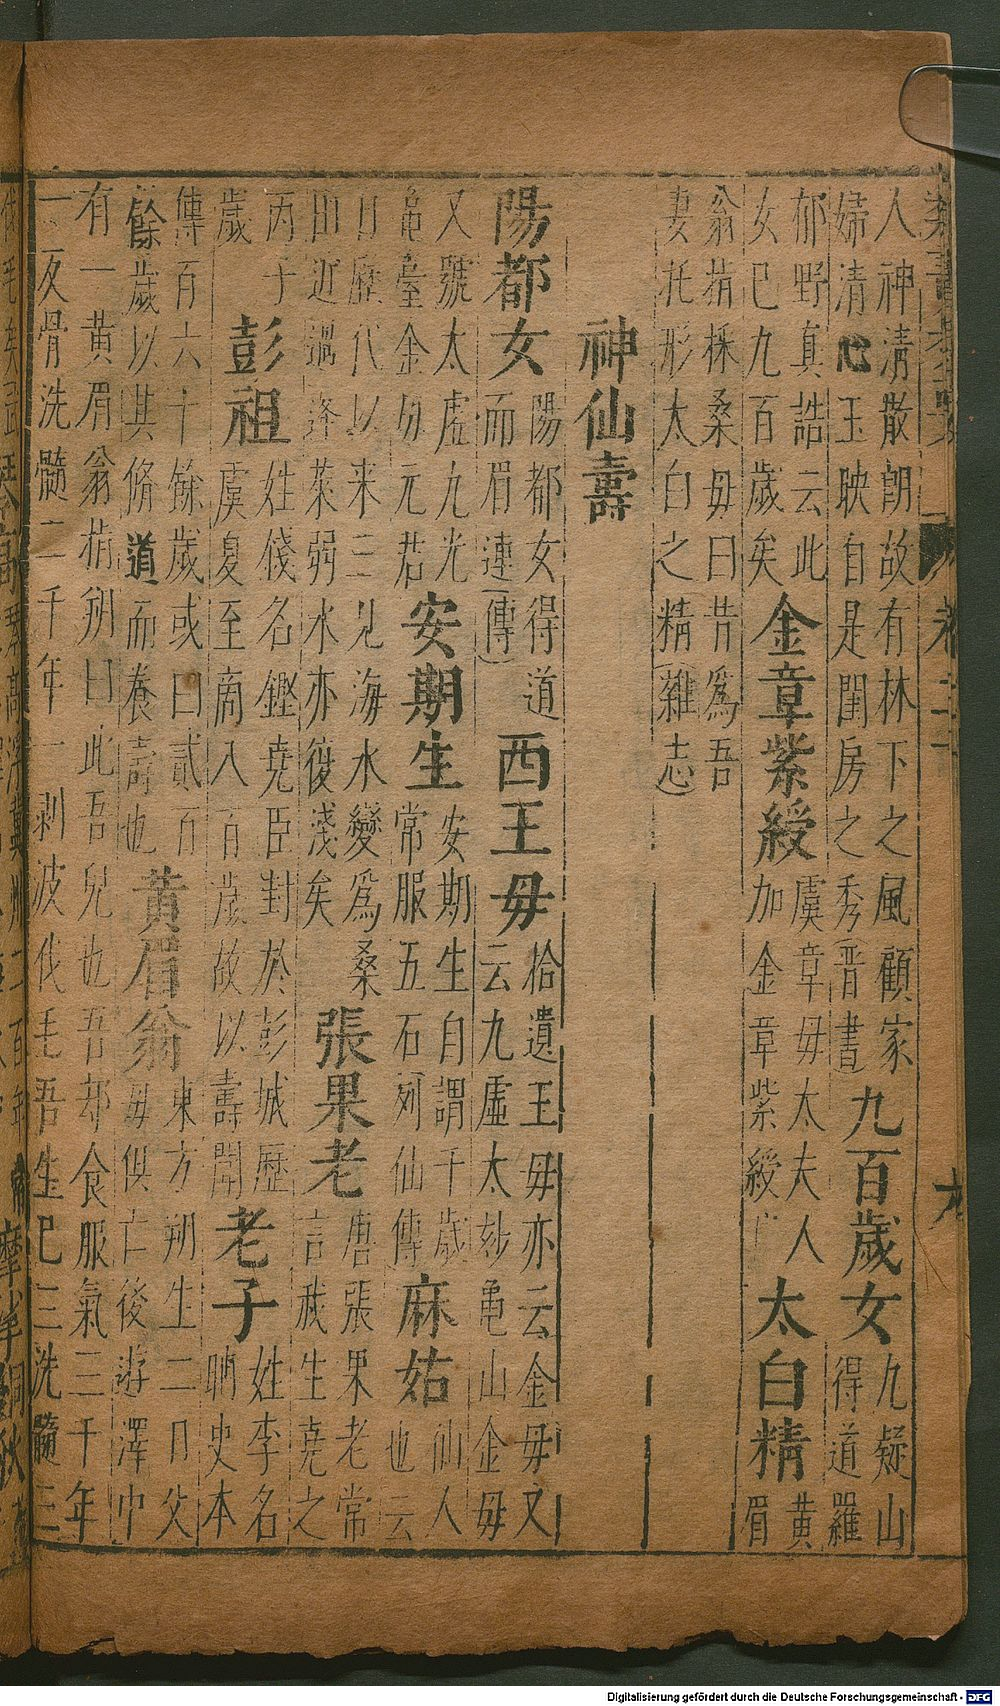 人神清散朗故有林下之風顧家
婦清心玉映自是閨房之秀晋書
九百歲女
九疑山
得道羅
郁野真誥云此
女已九百歲矣
金章紫綬
虞韋母太夫人
加金章紫綬
太白精
黃
眉
翁指採桑母曰昔為吾
妻托形太白之精雜志
神仙壽
陽都女
陽都女得道
而眉連傳
西王毋
拾遺王毋亦云金毋文
云九虛太妙龜山金毋
又號太虛九光
龜臺金母元君
安期生
安期生自謂千歲
常服五石列仙傳
麻姑
仙人
也云
日歷代以来三見海水變為桑
田近過蓬萊弱水亦復淺矣
張果老
唐張果老常
言我生堯之
丙子
歲
彭祖
姓籛名鏗堯臣封於彭城歷
虞夏至商入百歲故以壽聞
老子
姓李名
聃史本
傳百六十餘歲或曰貳百
餘歲以其脩道而養壽也
黃眉翁
東方朔生二日父
毋俱亡後遊澤中
有一黃眉翁指朔曰此吾兒也吾却食服氣三千年
一反骨洗髓二千年一剥波伐毛吾生已三洗髓三
卷二十
九
Digitalisierung gefördert durch die Deutsche Forschungsgemeinschaft - DFG